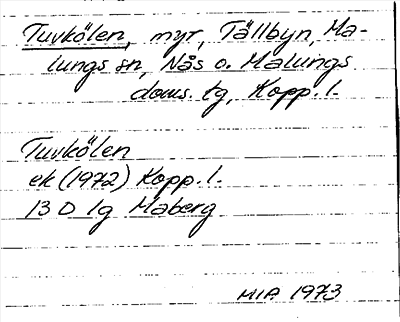 Tuvkölen, myr, Tällbyn, Ma-
lungs sn, Nås o. Malungs
doms. tg, Kopp. l.
Tuvkölen
ek (1972) Kopp. l.
13 D 1g Maberg
MIA 1973